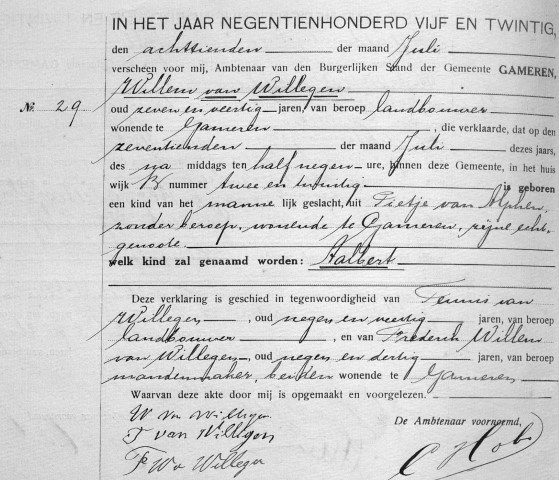 IN HET JAAR NEGENTIENHONDERD VIJF EN TWINTIG,
den achttienden der maand Juli
verscheen voor mij, Ambtenaar van den Burgerlijken Stand der Gemeente GAMEREN,
Willem van Willegen
№. 29
oud zeven en veertig jaren, van beroep landbouwer
wonende te Gameren, die verklaarde, dat op den
zeventienden der maand Juli dezes jaars,
des na middags ten half negen ure, binnen deze Gemeente, in het huis
wijk B nummer twee en twintig is geboren
een kind van het manne lijk geslacht, uit Pietje van Alphen,
zonder beroep, wonende te Gameren, zijne echt-
genoote.
welk kind zal genaamd worden: Aalbert
Deze verklaring is geschied in tegenwoordigheid van Teunis van
Willegen, oud negen en veertig jaren, van beroep
landbouwer, en van Frederik Willem
van Willegen, oud negen en dertig jaren, van beroep
mandenmaker, beiden wonende te Gameren
Waarvan deze akte door mij is opgemaakt en voorgelezen.
W van Willegen
De Ambtenaar voornoemd,
T van Willegen
F W v Willegen